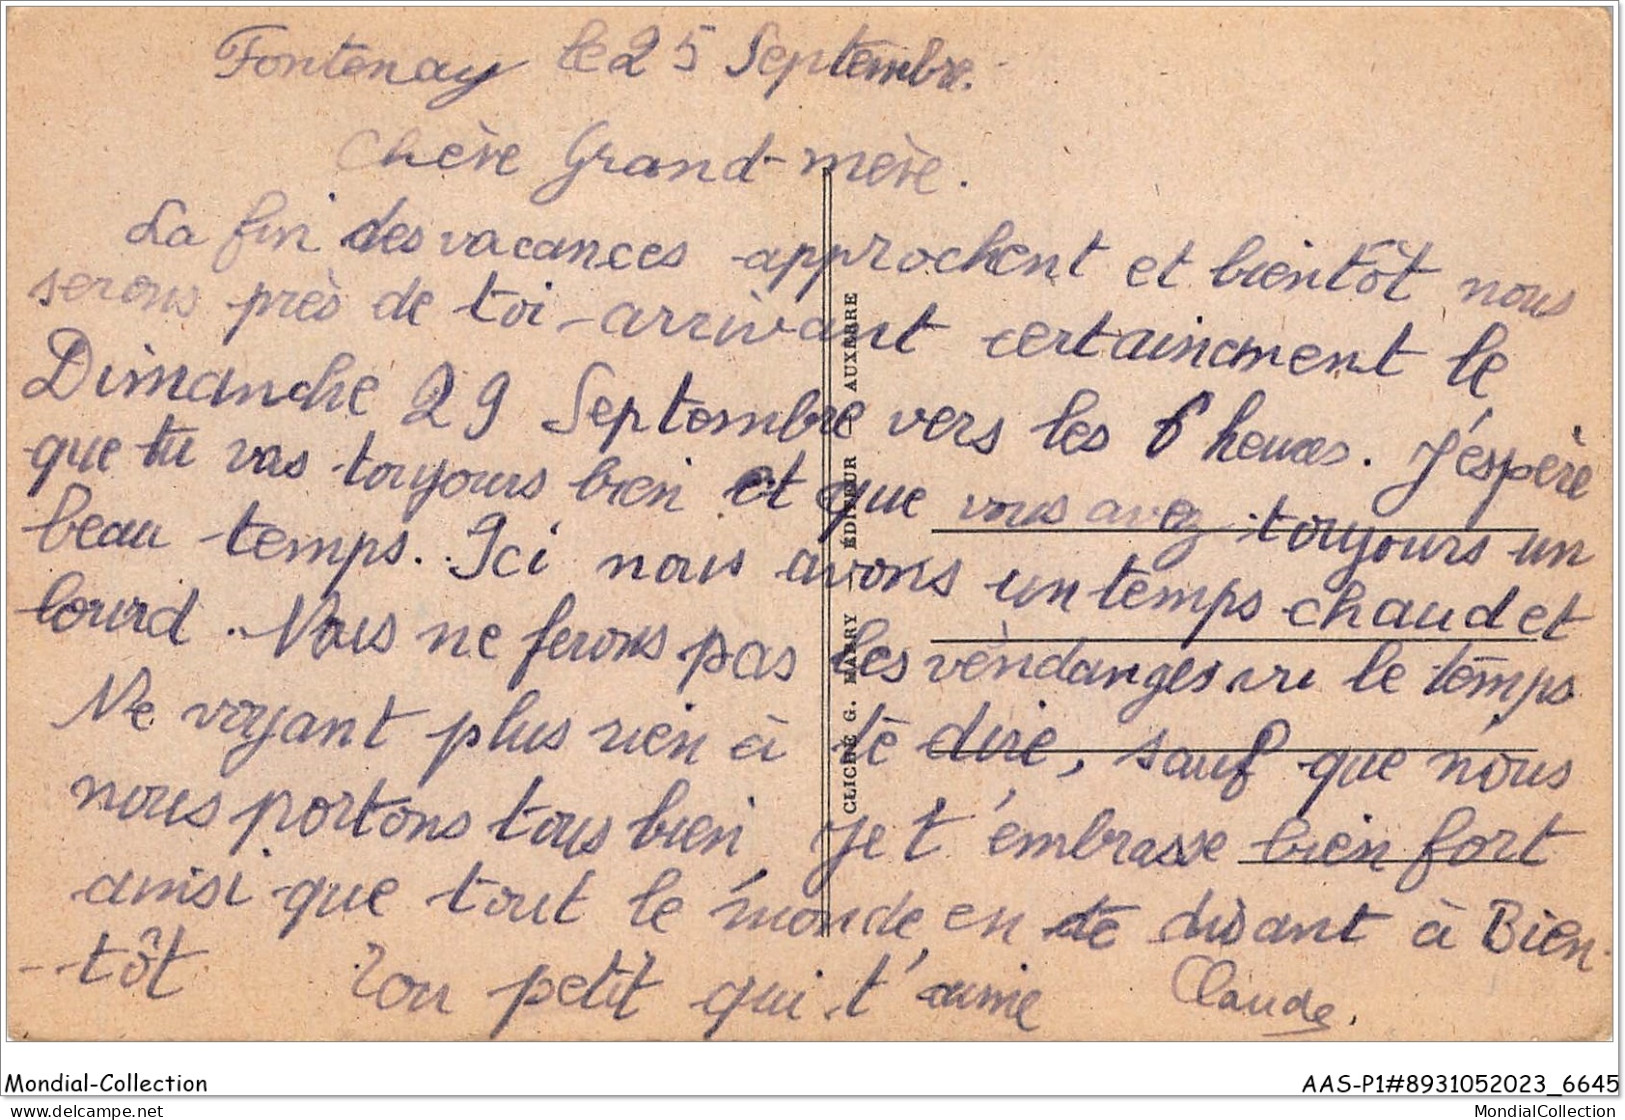 Fontenay le 25 Septembre.
Chère Grand-mère.
La fin des vacances approchent et bientôt nous
serons près de toi arrivant certainement le
Dimanche 29 Septembre vers les 6 heures. J'éspère
que tu vas toujours bien et que vous avez toujours un
beau temps. Ici nous avons un temps chaud et
lourd. Nous ne ferons pas les vendanges vu le temps
Ne voyant plus rien à te dire, sauf que nous
nous portons tous bien je t'embrasse bien fort
ainsi que tout le monde en te disant à Bien-
-tôt Ton petit qui t'aime Claude.
CLICHÉ G. MARRY — ÉDITEUR — AUXERRE
Mondial-Collection
AAS-P1#8931052023_6645
delcampe.net
MondialCollection